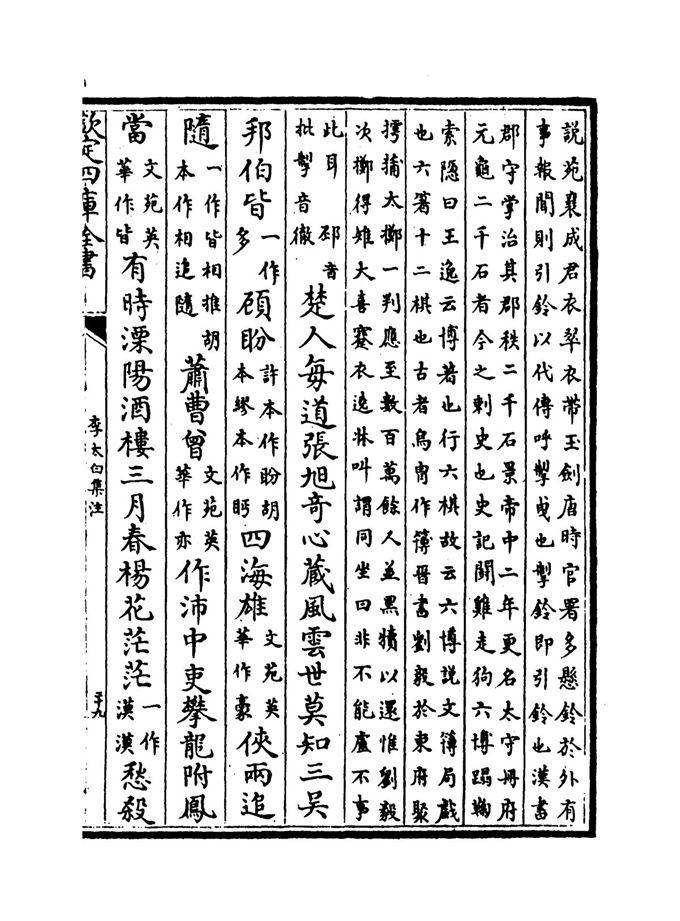 説苑襄成君衣翠衣帶玉劍唐時官署多懸鈴於外有
事報聞則引鈴以代傳呼掣曵也掣鈴即引鈴也漢書
郡守掌治其郡秩二千石景帝中二年更名太守冊府
元龜二千石者今之刺史也史記鬭雞走狗六博蹋鞠
索隱曰王逸云博著也行六棋故云六博説文簙局戲
也六箸十二棋也古者烏胄作簙晉書劉毅於東府聚
摴蒱大擲一判應至數百萬餘人並黑犢以還惟劉毅
次擲得雉大喜褰衣遶牀叫謂同坐曰非不能盧不事
此耳 邳音批掣音徹楚人每道張旭竒心藏風雲世莫知三吳
邦伯皆一作多顧盼許本作盼胡本繆本作眄四海雄文苑英華作豪俠兩追
隨一作皆相推胡本作相追隨蕭曹曾文苑英華作亦作沛中吏攀龍附鳳
當文苑英華作皆有時溧陽酒樓三月春楊花茫茫一作漠漠愁殺
欽定四庫全書
李太白集注